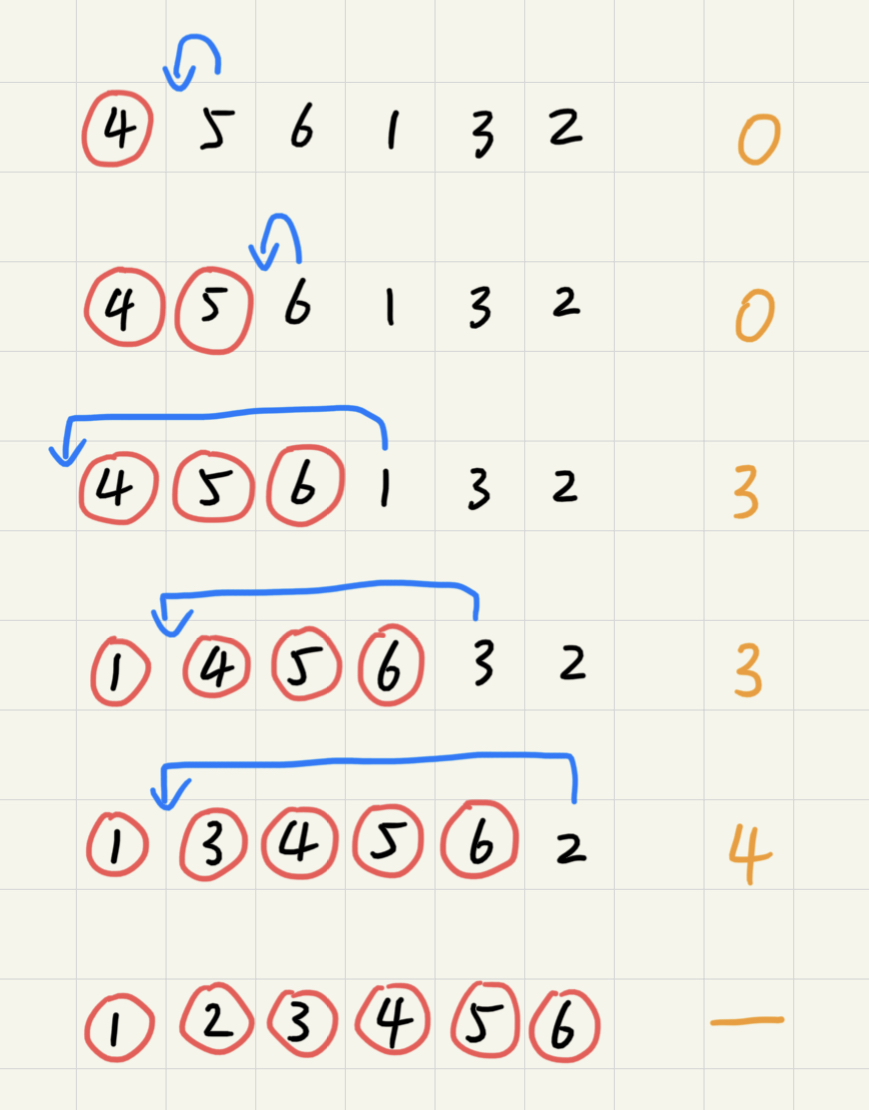 4 5 6 1 3 2 0
4 5 6 1 3 2 0
4 5 6 1 3 2 3
1 4 5 6 3 2 3
1 3 4 5 6 2 4
1 2 3 4 5 6 —